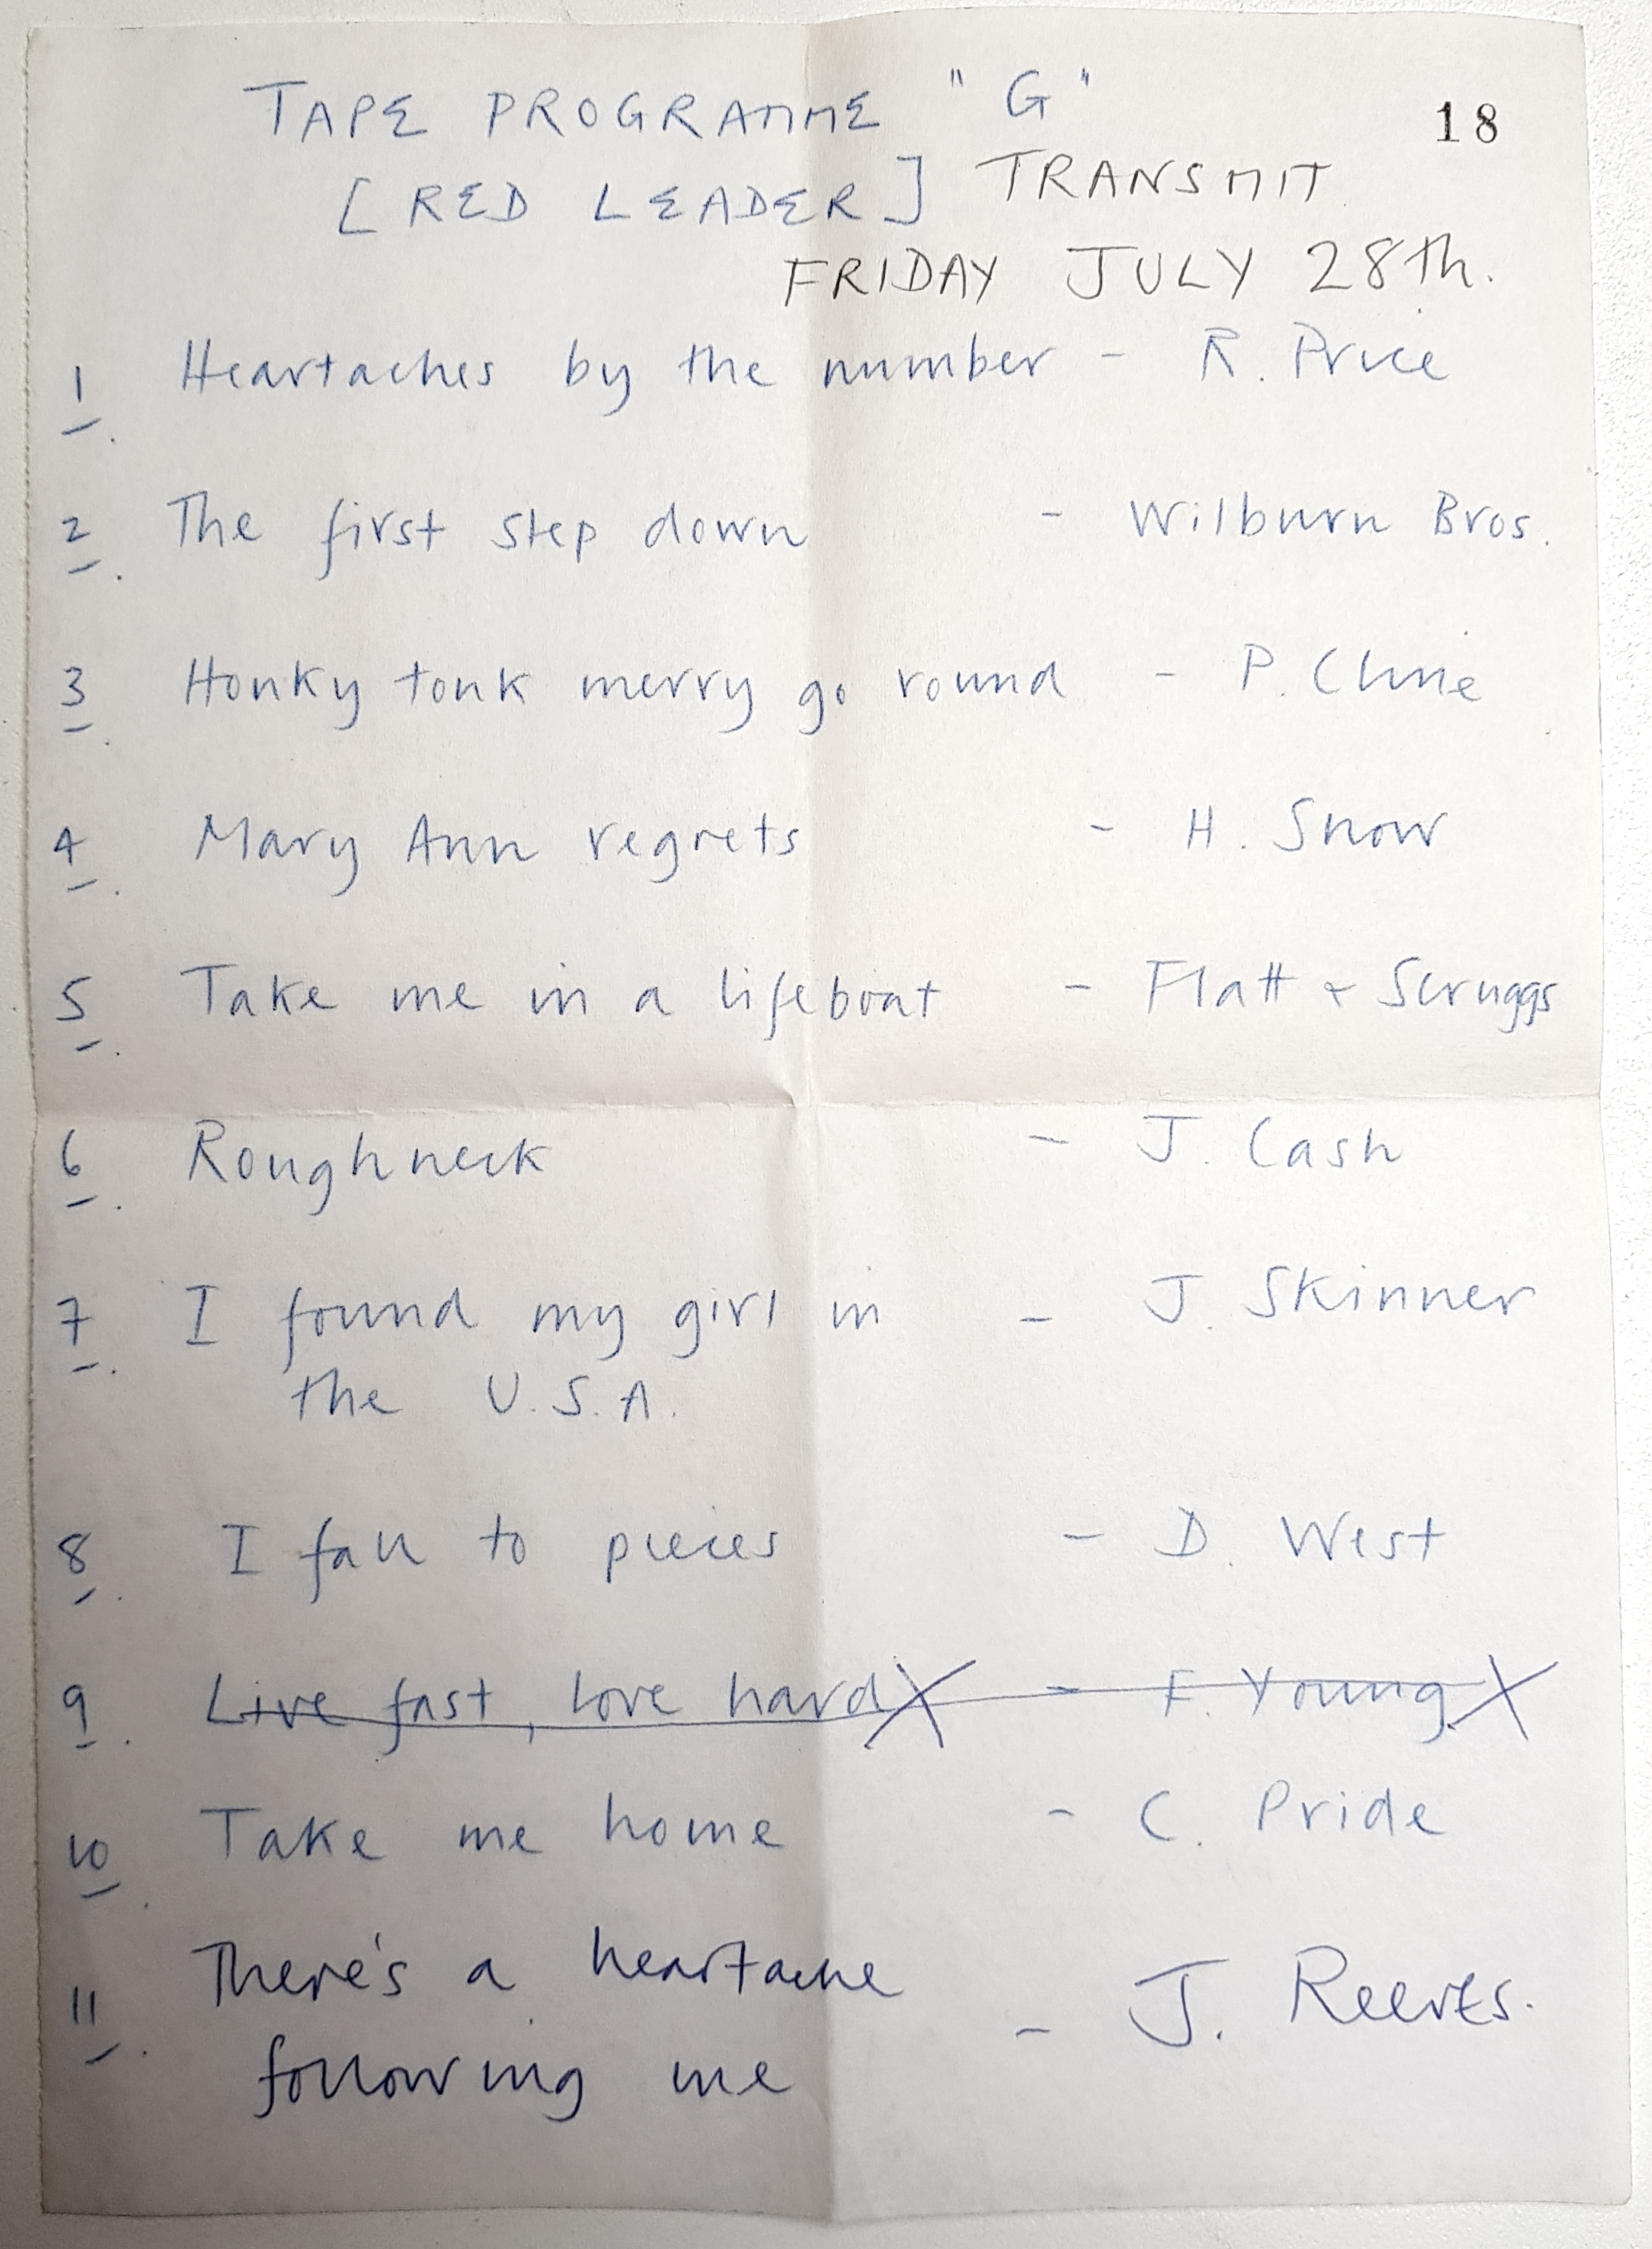 TAPE PROGRAMME "G"
18
[RED LEADER] TRANSMIT
FRIDAY JULY 28th.
1. Heartaches by the number - R. Price
2. The first step down - Wilburn Bros.
3. Honky tonk merry go round - P. Cline
4. Mary Ann regrets - H. Snow
5. Take me in a lifeboat - Flatt & Scruggs
6. Roughneck - J. Cash
7. I found my girl in - J. Skinner
the U.S.A.
8. I fall to pieces - D. West
9. Live fast, love hard X - F. Young X
10. Take me home - C. Pride
11. There's a heartache
following me - J. Reeves.